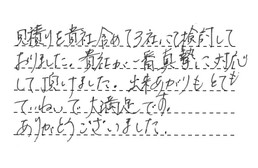 見積りを貴社含めて3社にて検討して
おりました。貴社が一番真摯に対応
して頂けました。出来あがりもとても
ていねいで大満足です。
ありがとうございました。